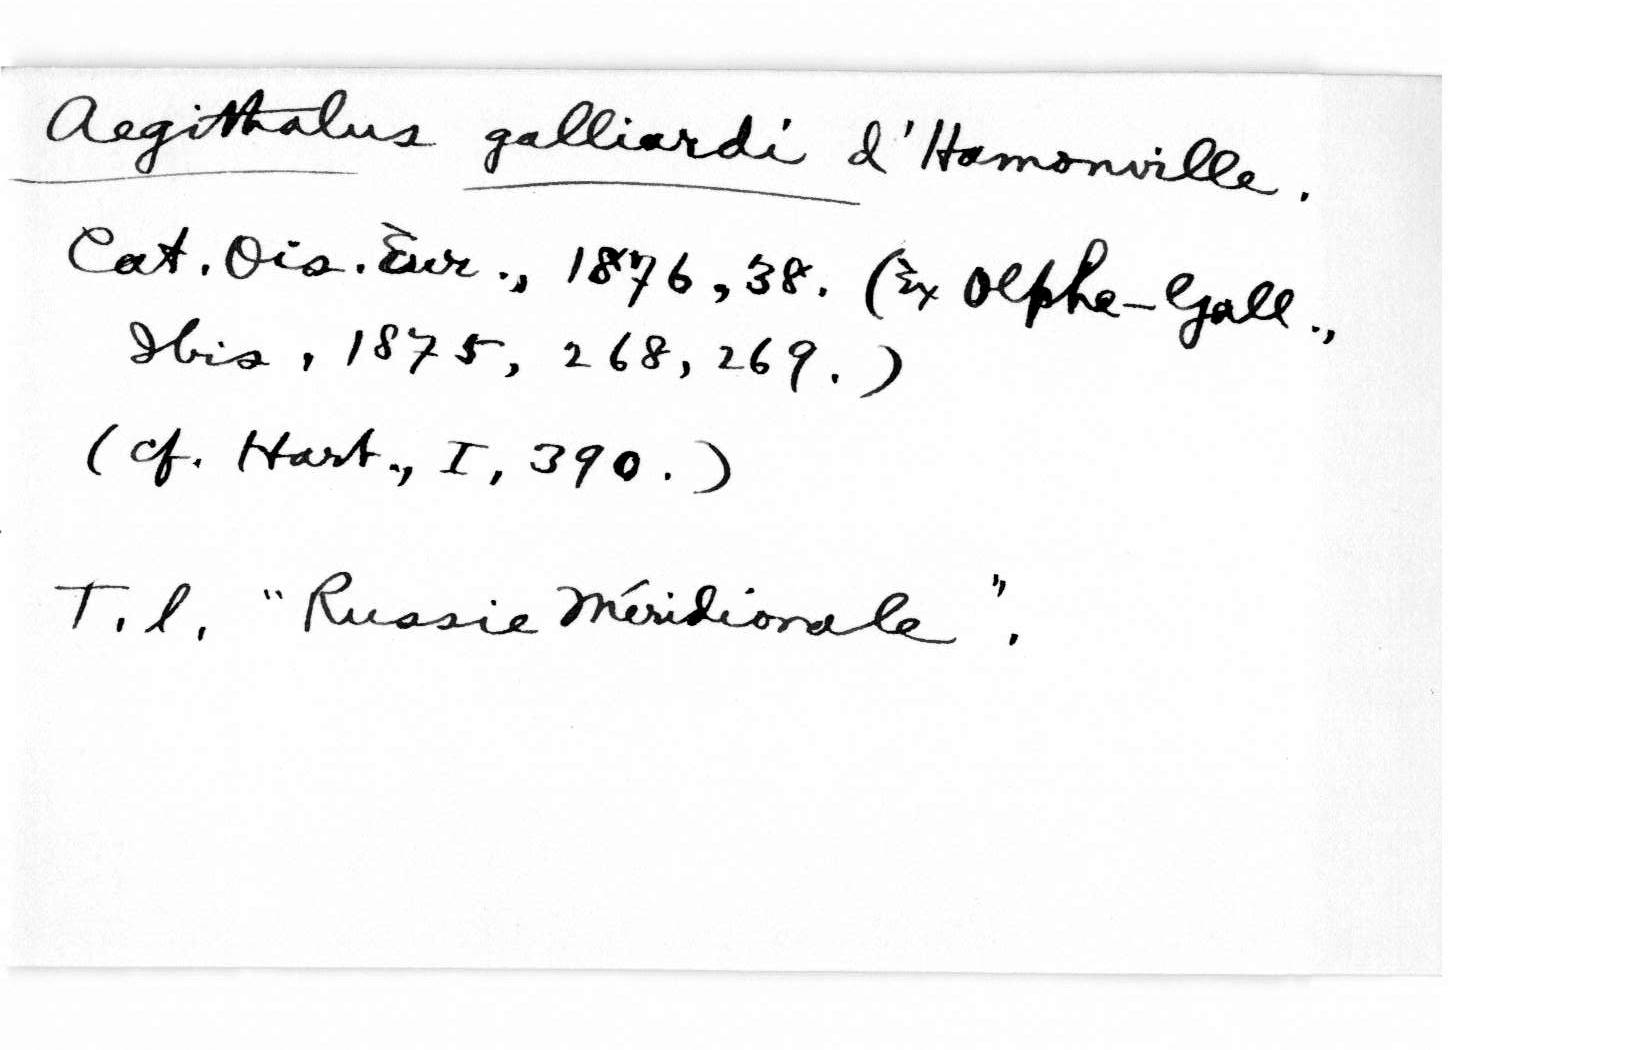 Aegithalus galliardi d'Hamonville.
Cat. Ois. Eur., 1876, 38. (Ex Olphe-Gall.,
Ibis, 1875, 268, 269.)
(cf. Hart., I, 390.)
T. l. "Russie Méridionale".